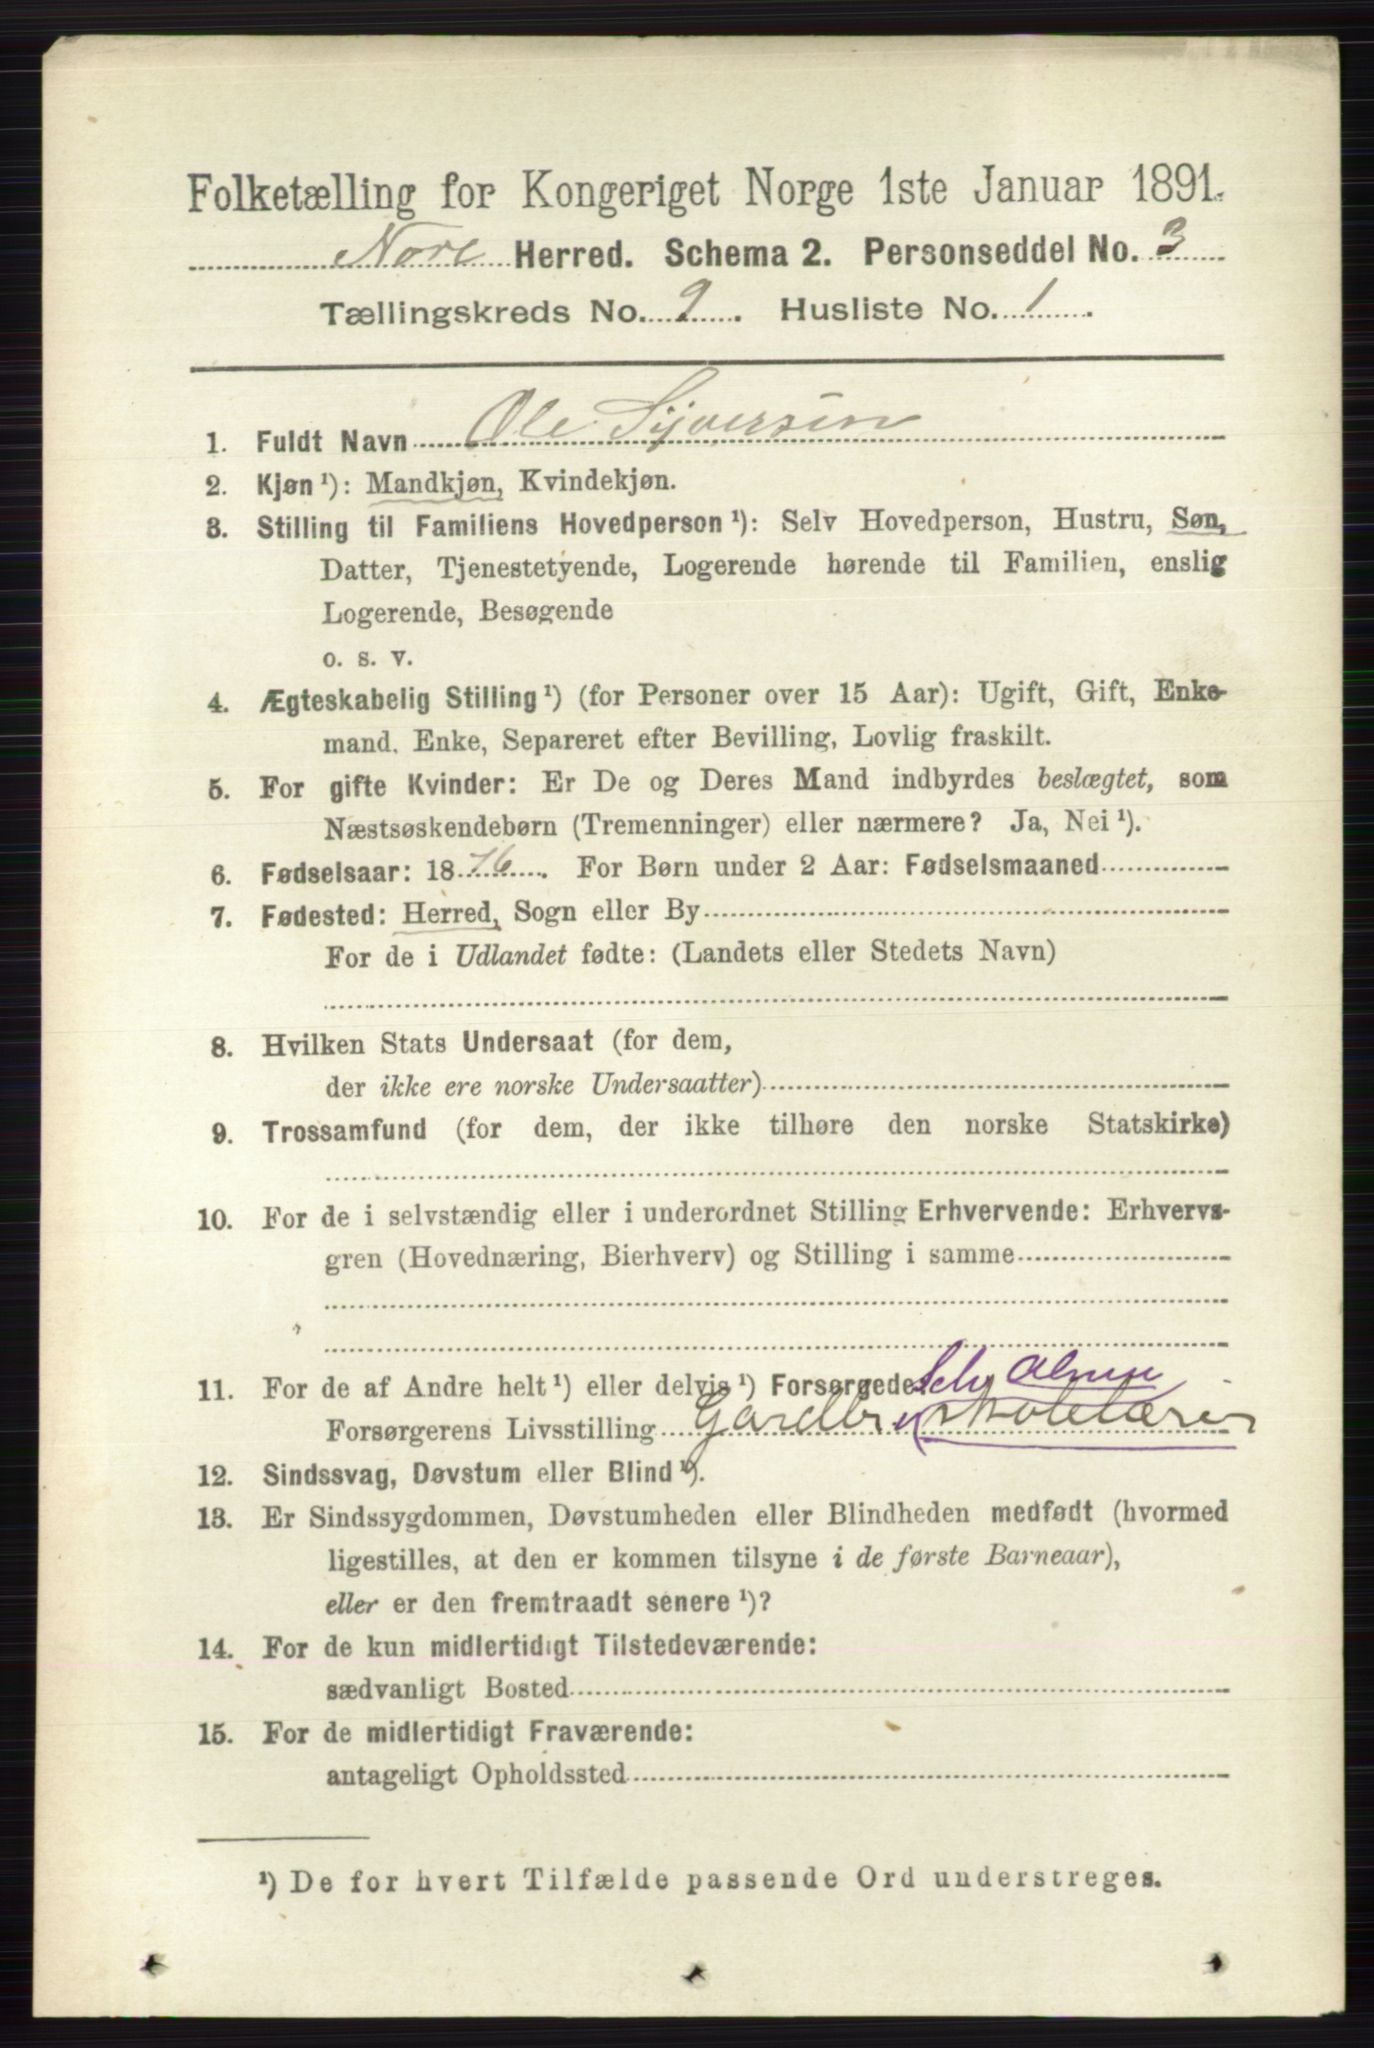 Folketælling for Kongeriget Norge 1ste Januar 1891.
Nore Herred. Schema 2. Personseddel No. 3
Tællingskreds No. 9. Husliste No. 1.
1. Fuldt Navn Ole Syversen
2. Kjøn ¹): Mandkjøn, Kvindekjøn.
3. Stilling til Familiens Hovedperson ¹): Selv Hovedperson, Hustru, Søn,
Datter, Tjenestetyende, Logerende hørende til Familien, enslig
Logerende, Besøgende
o. s. v.
4. Ægteskabelig Stilling ¹) (for Personer over 15 Aar): Ugift, Gift, Enke-
mand, Enke, Separeret efter Bevilling, Lovlig fraskilt.
5. For gifte Kvinder: Er De og Deres Mand indbyrdes beslægtet, som
Næstsøskendebørn (Tremenninger) eller nærmere? Ja, Nei ¹).
6. Fødselsaar: 1876. For Børn under 2 Aar: Fødselsmaaned
7. Fødested: Herred, Sogn eller By
For de i Udlandet fødte: (Landets eller Stedets Navn)
8. Hvilken Stats Undersaat (for dem,
der ikke ere norske Undersaatter)
9. Trossamfund (for dem, der ikke tilhøre den norske Statskirke)
10. For de i selvstændig eller i underordnet Stilling Erhvervende: Erhvervs-
gren (Hovednæring, Bierhverv) og Stilling i samme
11. For de af Andre helt ¹) eller delvis ¹) Forsørgede
Forsørgerens Livsstilling Gardbr skolelærer
12. Sindssvag, Døvstum eller Blind ¹).
13. Er Sindssygdommen, Døvstumheden eller Blindheden medfødt (hvormed
ligestilles, at den er kommen tilsyne i de første Barneaar),
eller er den fremtraadt senere ¹)?
14. For de kun midlertidigt Tilstedeværende:
sædvanligt Bosted
15. For de midlertidigt Fraværende:
antageligt Opholdssted
¹) De for hvert Tilfælde passende Ord understreges.